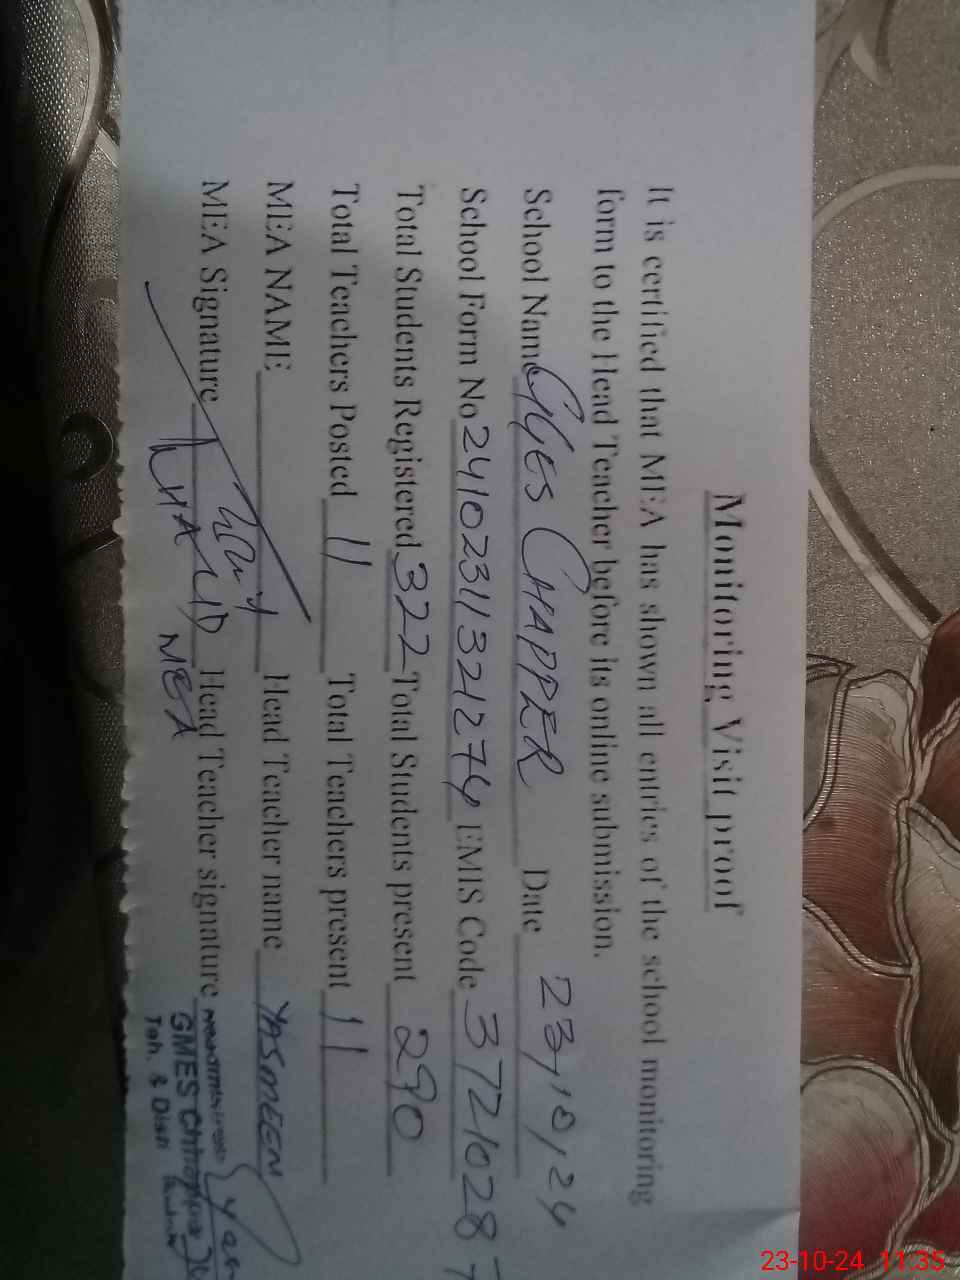 Monitoring Visit proof
It is certified that MEA has shown all entries of the school monitoring
form to the Head Teacher before its online submission.
School Name GGES CHAPPER Date 23,10,24
School Form No 2410231132127 EMIS Code 3721028
Total Students Registered 322 Total Students present 290
Total Teachers Posted 11 Total Teachers present 11
MEA NAME Head Teacher name YASMEEN
MEA Signature KHALID Head Teacher signature
MEA
GMES Chhappar
Teh. & Distt
23-10-24 11:35